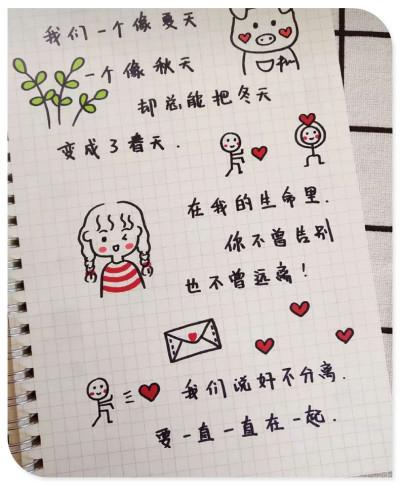 我们一个像夏天
一个像秋天
却总能把冬天
变成了春天.
在我的生命里.
你不曾告别
也不曾远离!
我们说好不分离.
要一直一直在一起.